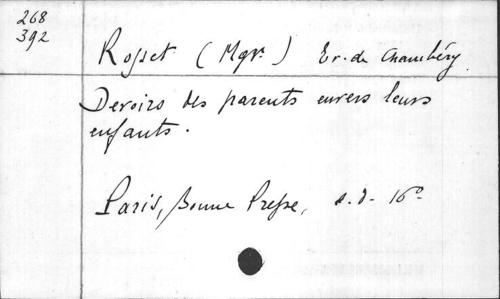 268
392
Rosset (Mgr.) Ev. de Chambéry
Devoirs des parents envers leurs
enfants.
Paris, Bonne Presse, s.d. 16°